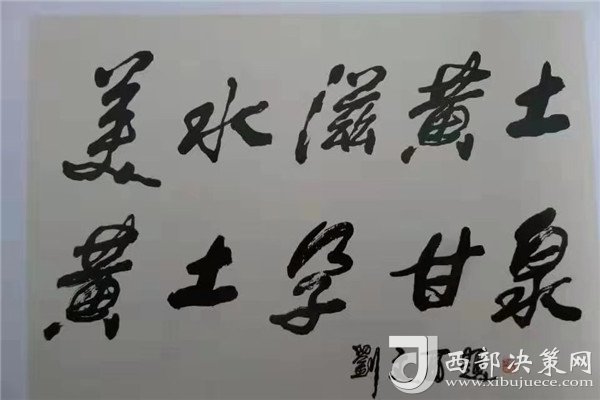 美水滋黄土
黄土孕甘泉
劉
西部决策网
www.xibujuece.com